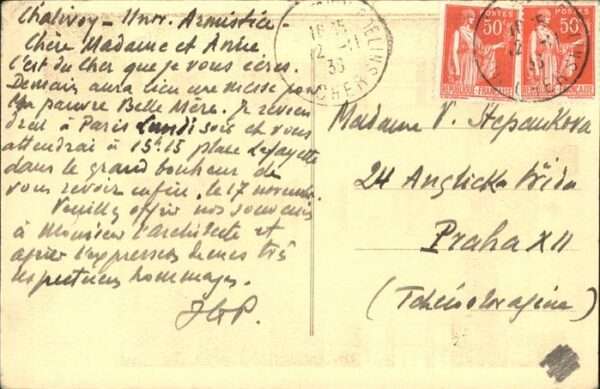 Chalivoy – Univ. Armistice –
Chère Madame et Amie
C'est du Cher que je vous écris.
Demain aura lieu une messe pour
ma pauvre Belle Mère. Je revien
drai à Paris Lundi soir et vous
attendrai à 15h.15 place Lafayette
dans le grand bonheur de
vous revoir enfin, le 17 novembre.
Veuillez offrir nos souvenirs
à Monsieur l'architecte et
agréer l'expression de mes très
respectueux hommages.
16 15
12 -11
33
CHER
POSTES
50c
RÉPUBLIQUE FRANÇAISE
POSTES
50c
RÉPUBLIQUE FRANÇAISE
Madame V. Štěpánková
24 Anglická třída
Praha XII
(Tchécoslovaquie)